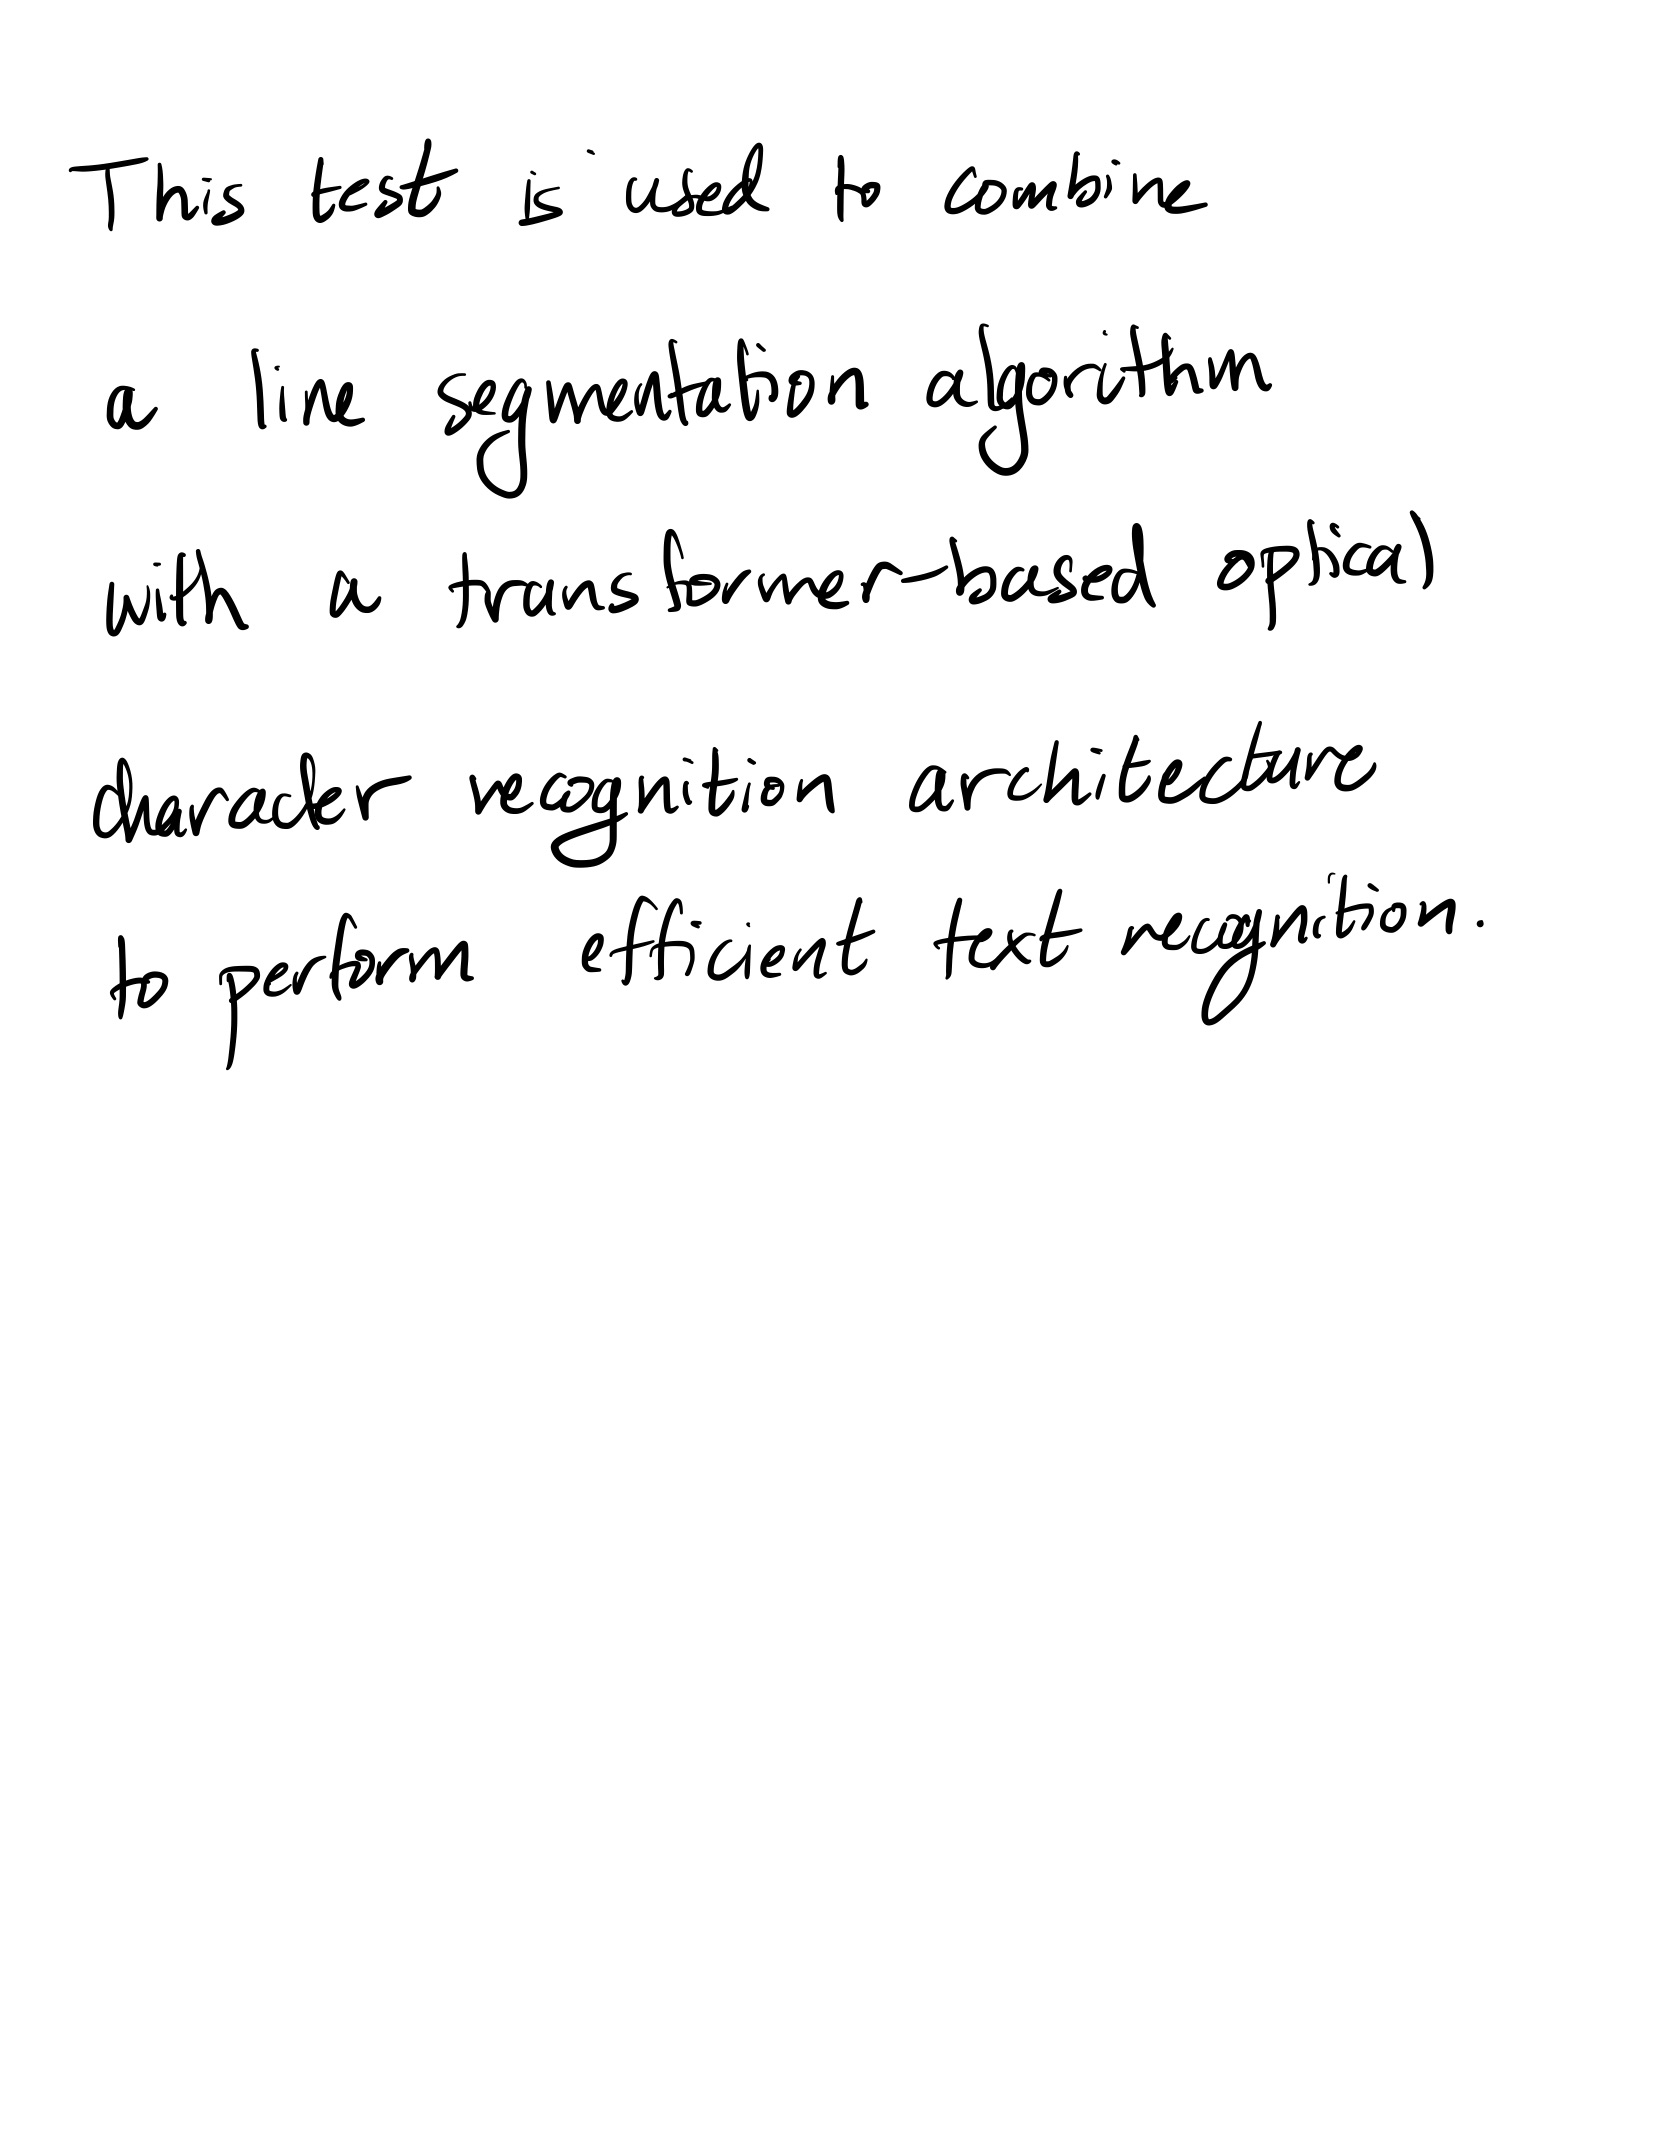 This test is used to combine
a line segmentation algorithm
with a transformer-based optical
character recognition architecture
to perform efficient text recognition.